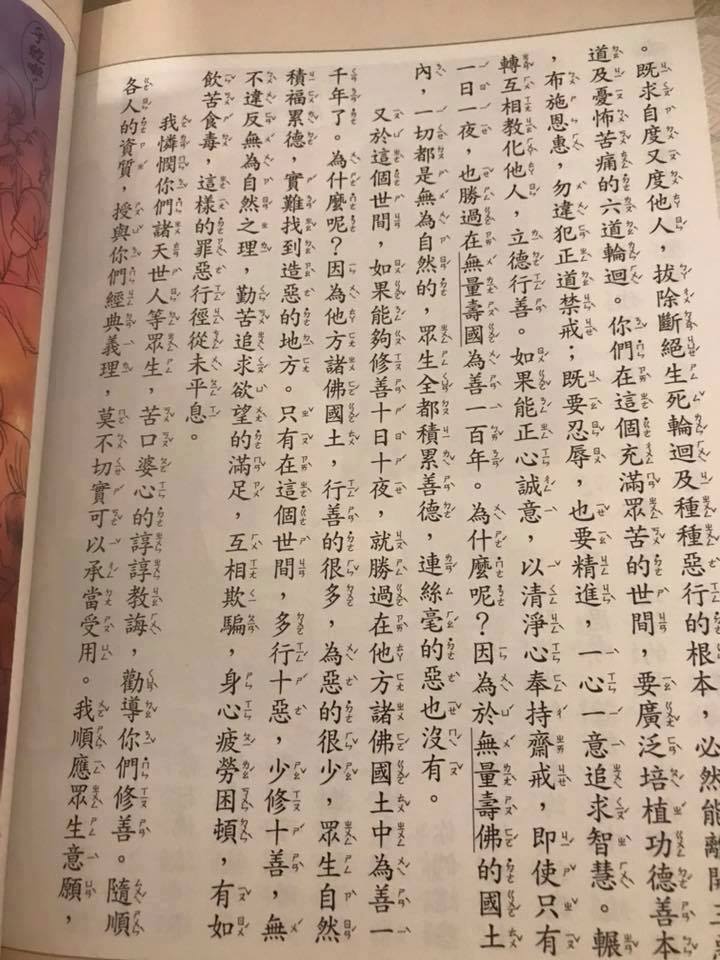 。既求自度又度他人，拔除斷絕生死輪迴及種種惡行的根本，必然能離開三惡
道及憂怖苦痛的六道輪迴。你們在這個充滿眾苦的世間，要廣泛培植功德善本
，布施恩惠，勿違犯正道禁戒；既要忍辱，也要精進，一心一意追求智慧。輾
轉互相教化他人，立德行善。如果能正心誠意，以清淨心奉持齋戒，即使只有
一日一夜，也勝過在無量壽國為善一百年。為什麼呢？因為於無量壽佛的國土
內，一切都是無為自然的，眾生全都積累善德，連絲毫的惡也沒有。
又於這個世間，如果能夠修善十日十夜，就勝過在他方諸佛國土中為善一
千年了。為什麼呢？因為他方諸佛國土，行善的很多，為惡的很少，眾生自然
積福累德，實難找到造惡的地方。只有在這個世間，多行十惡，少修十善，無
不違反無為自然之理，勤苦追求欲望的滿足，互相欺騙，身心疲勞困頓，有如
飲苦食毒，這樣的罪惡行徑從未平息。
我憐憫你們諸天世人等眾生，苦口婆心的諄諄教誨，勸導你們修善。隨順
各人的資質，授與你們經典義理，莫不切實可以承當受用。我順應眾生意願，